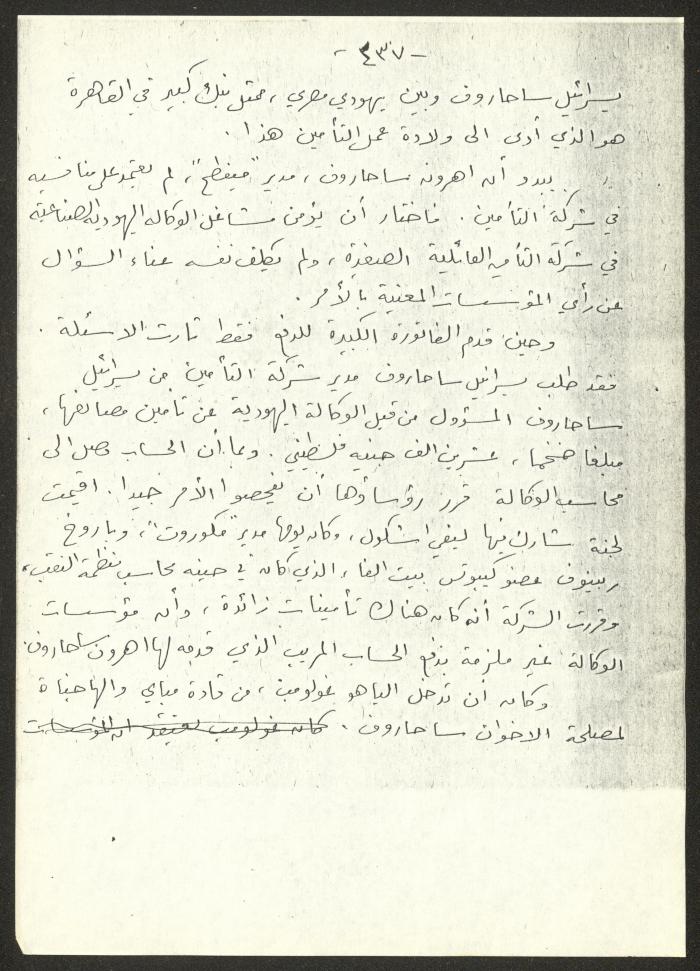 - ٤٣٧ -
يسرائيل ساحاروف وبين يهودي مصري، ممثل بنك كبير في القاهرة
هو الذي أدى الى ولادة عمل التأمين هذا.
يبدو أن اهرون ساحاروف، مدير "ميفطح"، لم يعتمد على منافسيه
في شركة التأمين. فاختار أن يؤمن مشاغل الوكالة اليهودية الصناعية
في شركة التأمين العائلية الصغيرة، ولم يكلف نفسه عناء السؤال
عن رأي المؤسسات المعنية بالأمر.
وحين قدم الفاتورة الكبيرة للدفع فقط ثارت الاسئلة.
فقد طلب يسرائيل ساحاروف مدير شركة التأمين من يسرائيل
ساحاروف المسؤول من قبل الوكالة اليهودية عن تأمين مصانعها،
مبلغا ضخما، عشرين الف جنيه فلسطيني. وبما أن الحساب وصل الى
محاسب الوكالة قرر رؤساؤها أن يفحصوا الأمر جيدا. اقيمت
لجنة شارك فيها ليفي اشكول، وكان يومها مدير "مكوروت"، وباروخ
ربينوف عضو كيبوتس بيت الفا، الذي كان في حينه محاسب منظمة
وقررت الشركة أنه كان هناك تأمينات زائدة، وأن مؤسسات
الوكالة غير ملزمة بدفع الحساب المريب الذي قدمه لها اهرون ساحاروف.
وكان أن تدخل الياهو غولومب، من قادة مباي والهاجناة
لمصلحة الاخوان ساحاروف. كان غولومب يعتقد ان المؤسسات